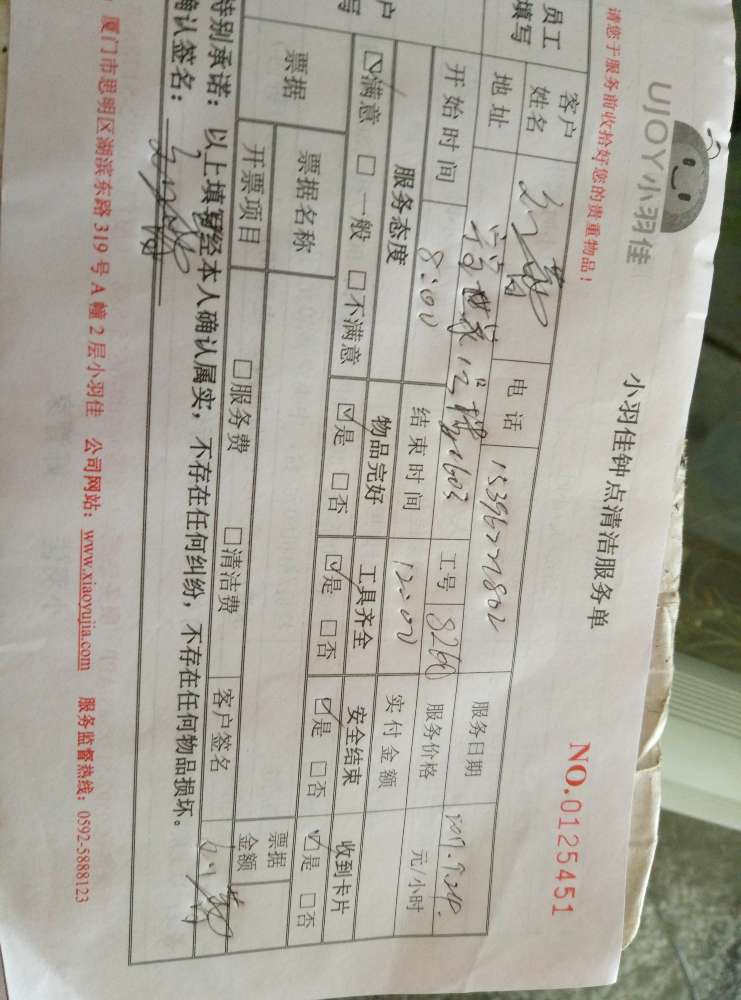 UJOY小羽佳
小羽佳钟点清洁服务单
请您于服务前收拾好您的贵重物品！
NO.0125451
员工填写
客户姓名
电话 15396221802
服务日期 2017.7.24.
地址
1603
工号 8260
服务价格 元/小时
开始时间 8:00
结束时间 12:00
实付金额
服务态度 物品完好 工具齐全 安全结束 收到卡片
☑满意 □一般 □不满意 ☑是 □否 ☑是 □否 ☑是 □否 ☑是 □否
票据 票据名称 □服务费 □清洁费 票据金额
开票项目 客户签名
特别承诺：以上填写经本人确认属实，不存在任何纠纷，不存在任何物品损坏。
确认签名：
厦门市思明区湖滨东路319号A幢2层小羽佳 公司网站：www.xiaoyujia.com 服务监督热线：0592-5888123